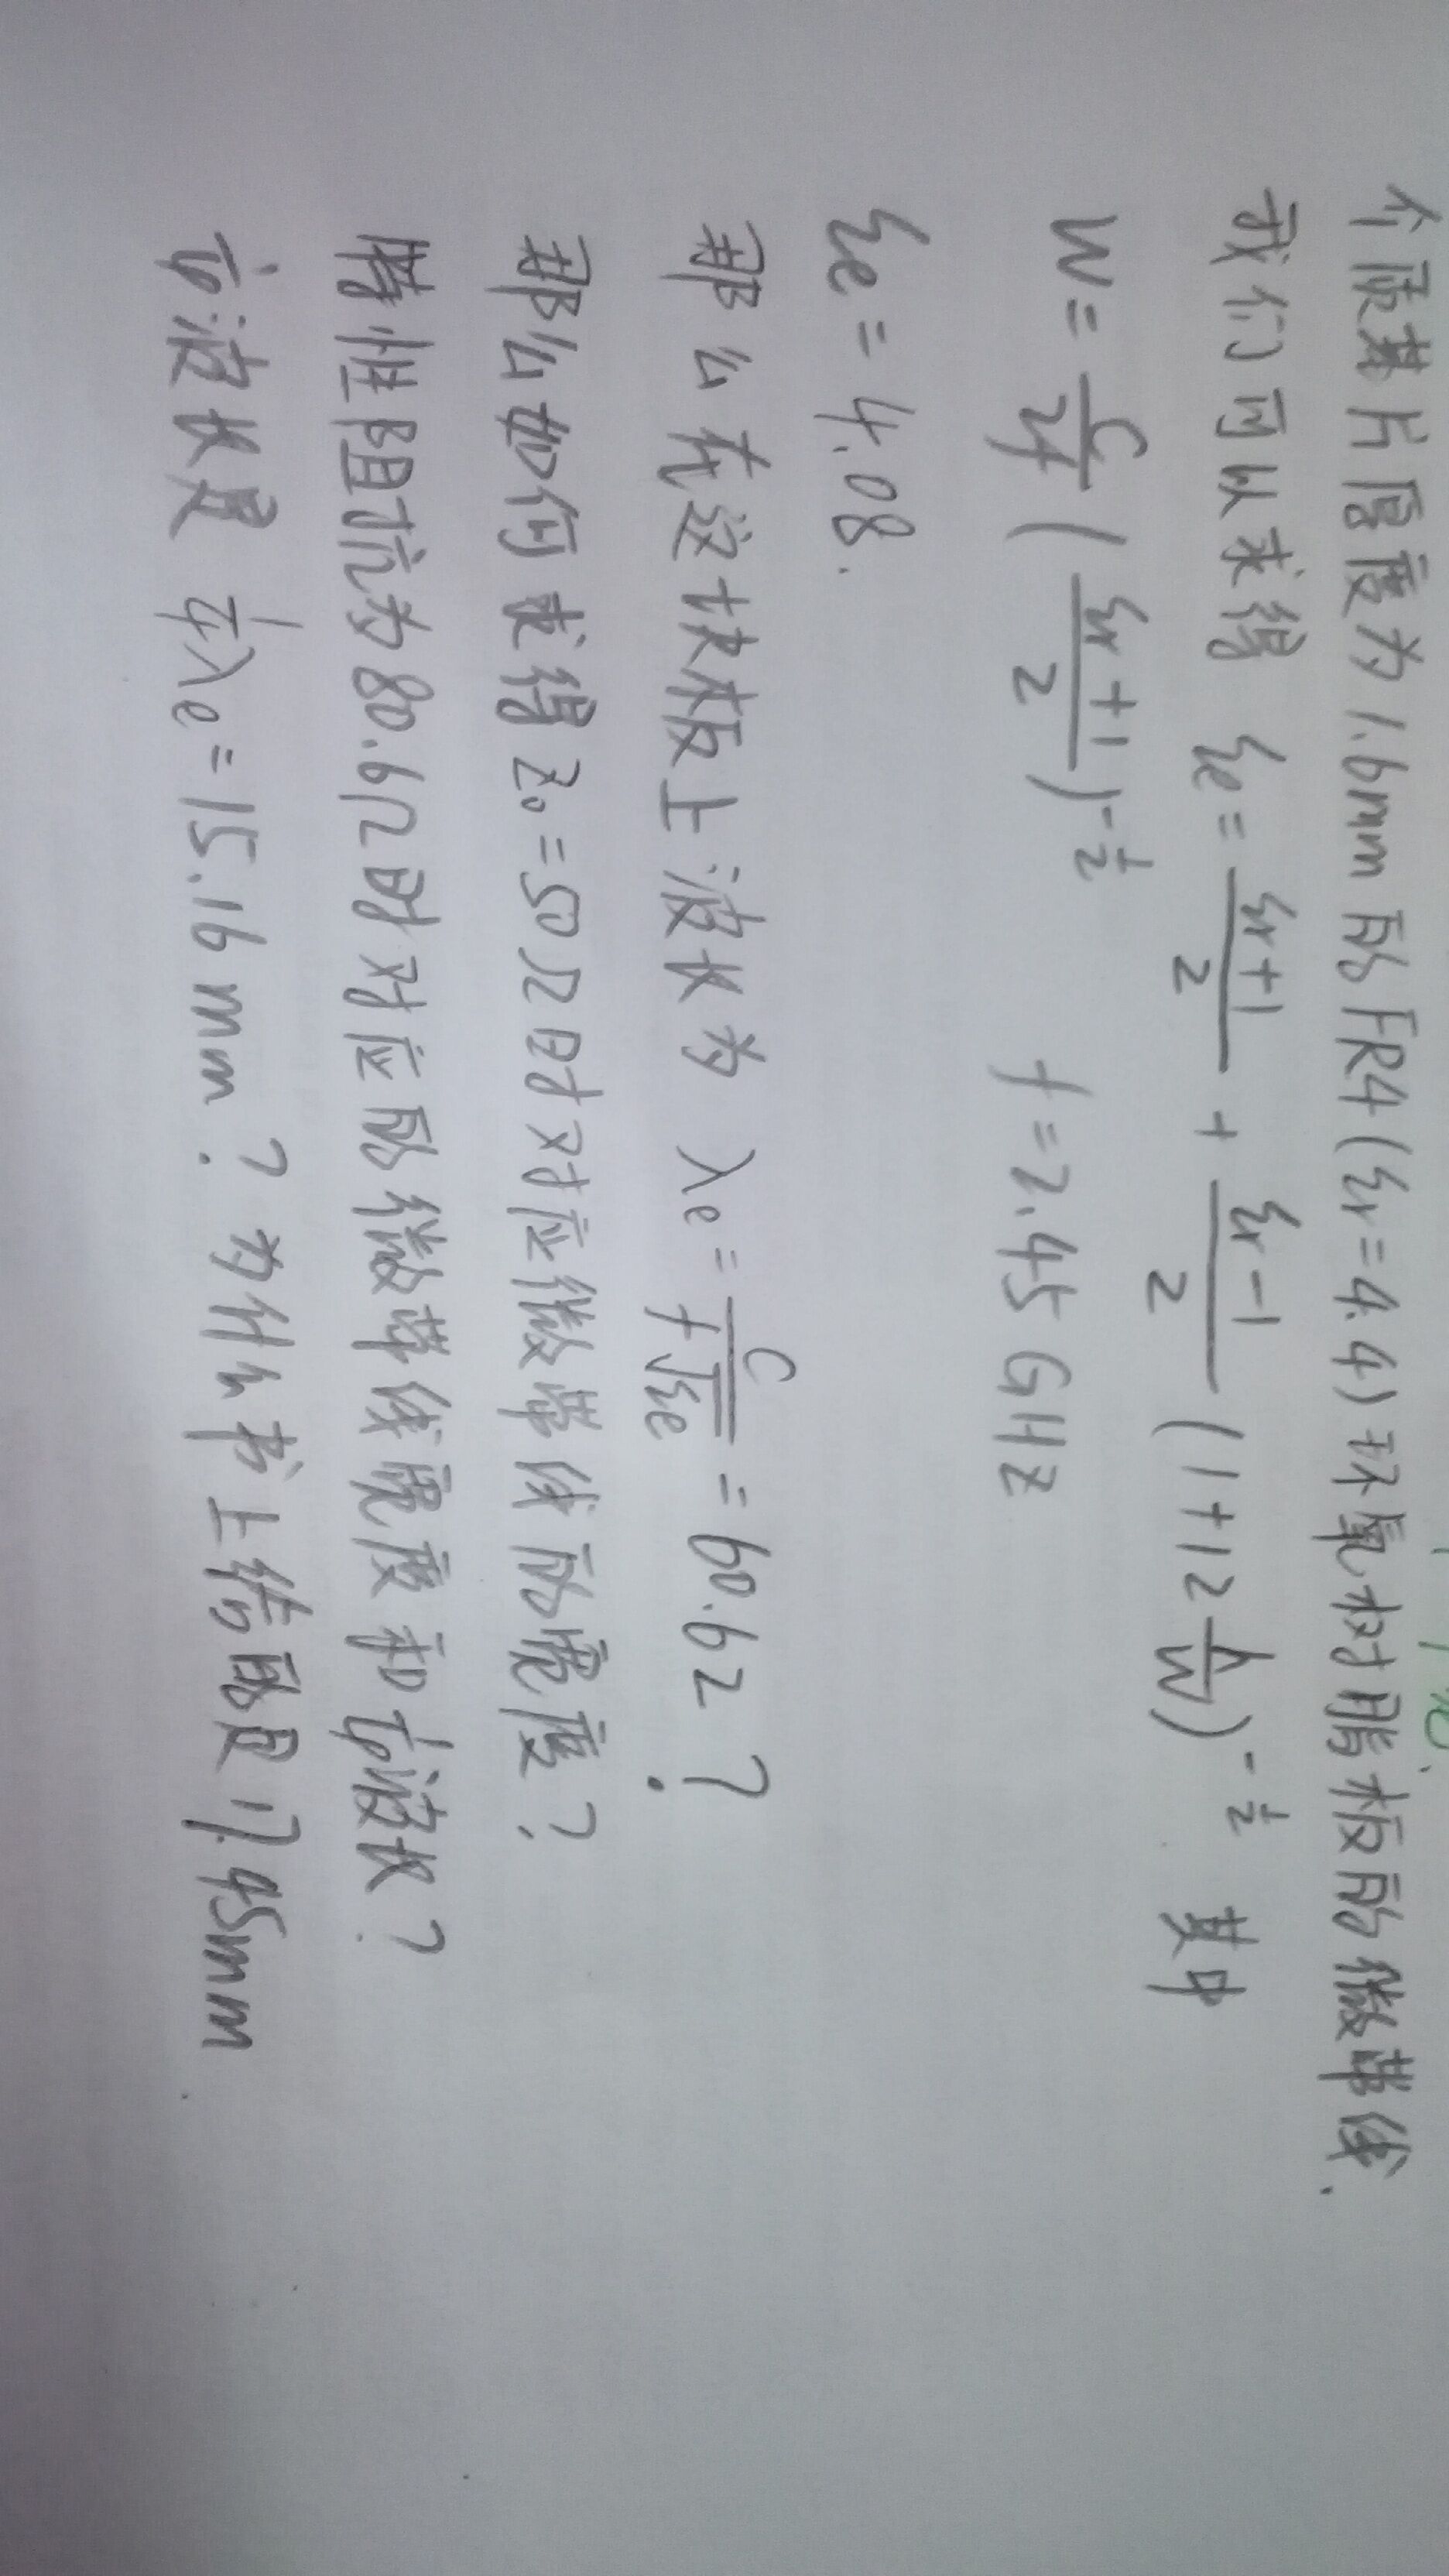 介质基片厚度为1.6mm的FR4(εr=4.4)环氧树脂板的微带线.
我们可以求得 εe = (εr+1)/2 + (εr-1)/2 (1+12 h/W)^(-1/2) 其中
W = c/2f ((εr+1)/2)^(-1/2) f=2.45GHz
εe=4.08.
那么在这块板上波长为 λe = c/(f√εe) = 60.62 ?
那么如何求得Z0=50Ω时对应微带线的宽度?
特性阻抗为80.6Ω时对应的微带线宽度和1/4波长?
1/4波长是 1/4 λe=15.16mm? 为什么书上给的是17.45mm